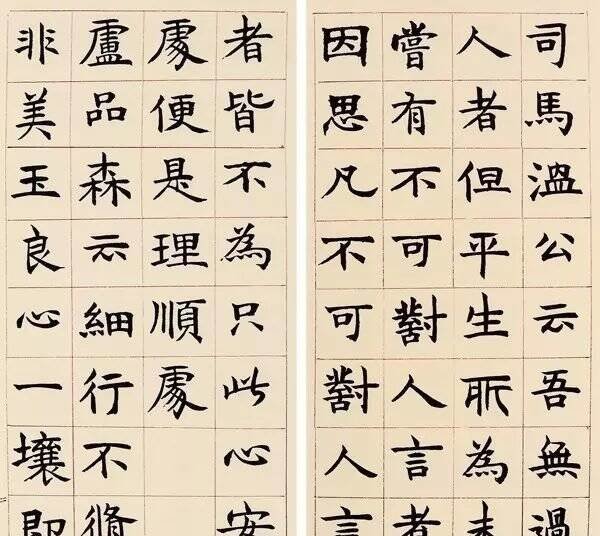 司馬溫公云吾無過
人者但平生所為未
嘗有不可對人言者
因思凡不可對人言
者皆不為只此心安
處便是理順處
盧品森云細行不脩
非美玉良心一壞即